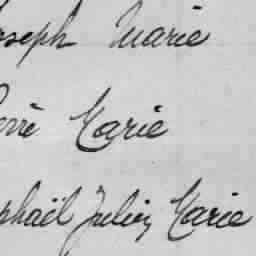 oseph Marie
erre Marie
phaël Julien Marie